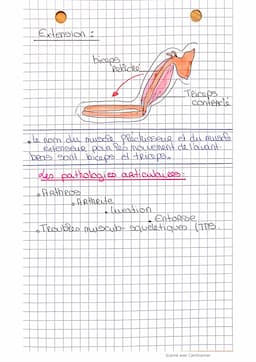 Extension :
biceps
relâché
Triceps
contracté
. le nom du muscle fléchisseur et du muscle
extenseur pour les mouvement de l'avant-
bras sont biceps et triceps.
Les pathologies articulaires:
. Arthros
. Arthrite
. luxation
. Entorse
. Troubles musculo-squelettiques (TMS
Scanné avec CamScanner